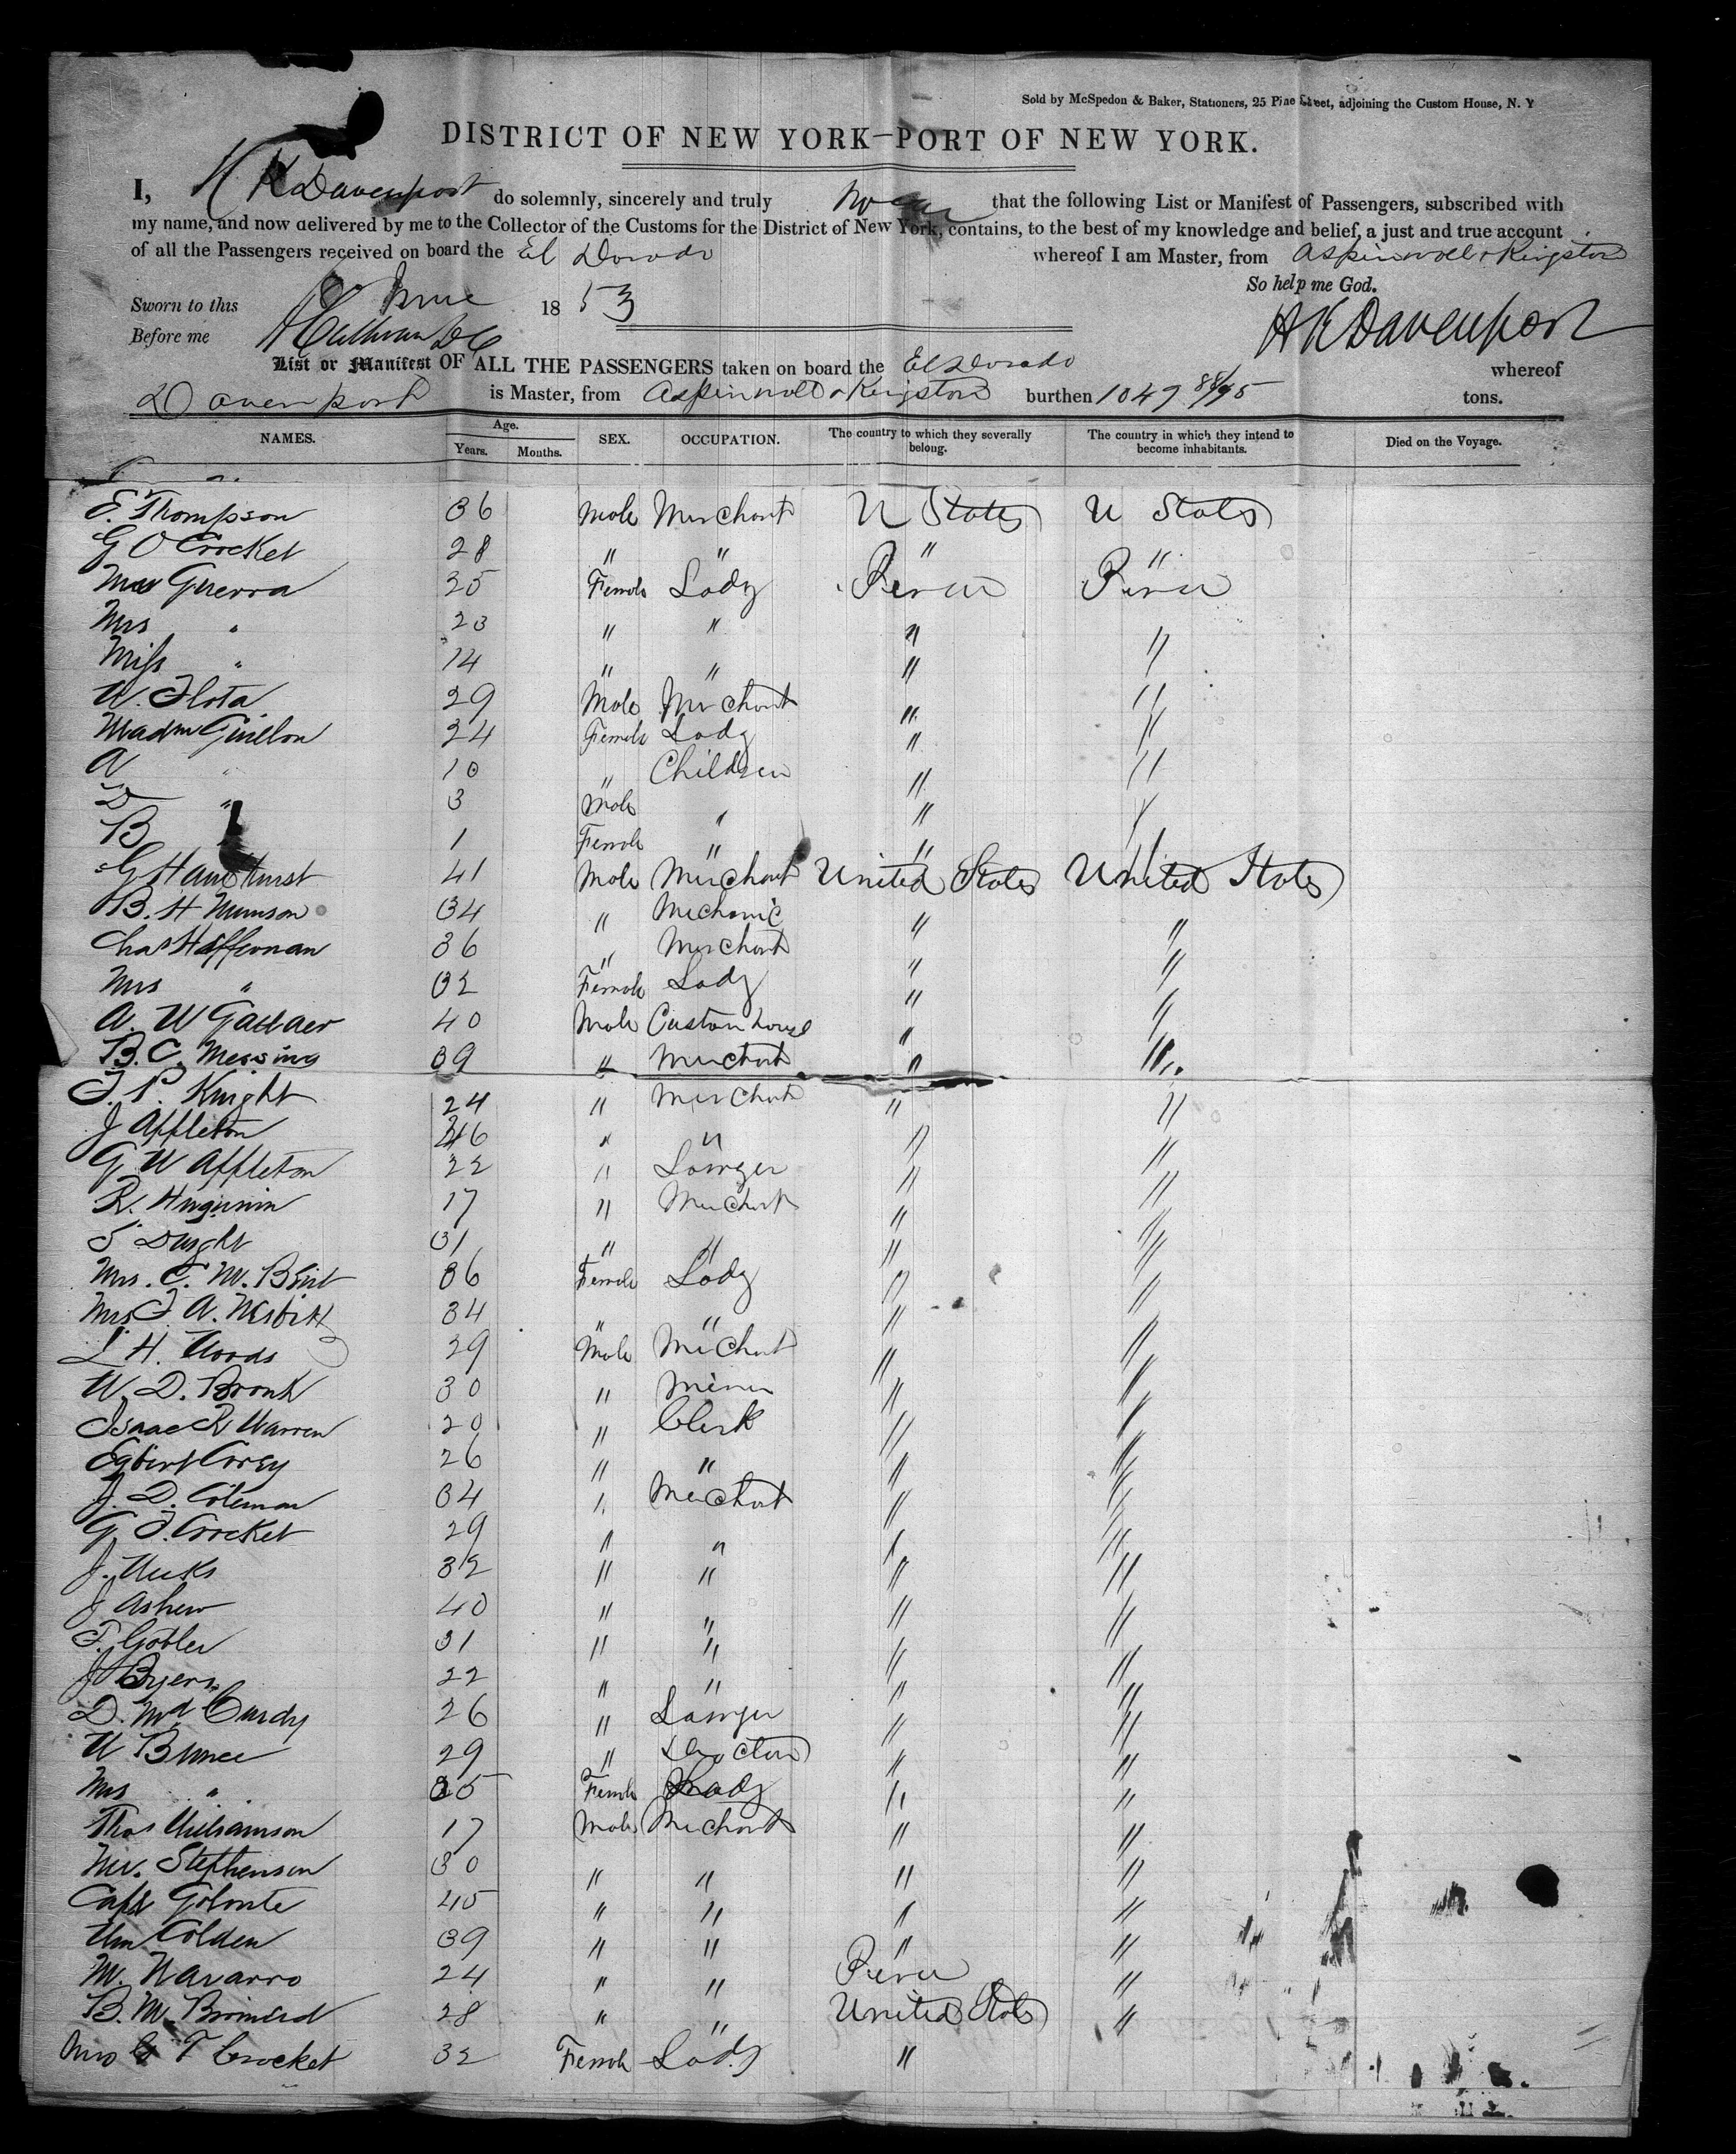 Sold by McSpedon & Baker, Stationers, 25 Pine Street, adjoining the Custom House, N. Y
DISTRICT OF NEW YORK—PORT OF NEW YORK.
I, H K Davenport do solemnly, sincerely and truly swear that the following List or Manifest of Passengers, subscribed with
my name, and now delivered by me to the Collector of the Customs for the District of New York, contains, to the best of my knowledge and belief, a just and true account
of all the Passengers received on board the El Dorado whereof I am Master, from Aspinwall & Kingston
So help me God.
Sworn to this June 1853
Before me
H K Davenport
List or Manifest OF ALL THE PASSENGERS taken on board the El Dorado whereof
Davenport is Master, from Aspinwall & Kingston burthen 1049 88/95 tons.
NAMES. Age. Years. Months. SEX. OCCUPATION. The country to which they severally belong. The country in which they intend to become inhabitants. Died on the Voyage.
E. Thompson 36 Male Merchant U States U States
G O Crocket 28 " " " "
Mrs Guerra 25 Female Lady Peru Peru
Mrs " 23 " " " "
Miss " 14 " " " "
W. Flota 29 Male Merchant " "
Madm Guillon 24 Female Lady " "
A " 10 " Children " "
D " 3 Male " " "
B 1 Female " "
G Hawhurst 41 Male Merchant United States United States
B. H Munson 34 " Mechanic " "
Chas Heffernan 36 " Merchant " "
Mrs " 32 Female Lady " "
A. W 40 Male Custom house " "
B. C. Messing 39 " Merchant " "
F. P. Knight 24 " Merchant " "
J Appleton 46 " " " "
G W Appleton 22 " Lawyer " "
R. Hugunin 17 " Merchant " "
S Dwight 31 " " " "
Mrs. C. M. 36 Female Lady " "
Mrs F. A. Nesbitt 34 " " " "
L H. Woods 29 Male Merchant " "
W. D. Bronk 30 " Miner " "
Isaac R Warren 20 " Clerk " "
Egbert Corey 26 " " " "
J. D. Coleman 34 " Merchant " "
G F. Crocket 29 " " " "
J. Weeks 32 " " " "
J Askew 40 " " " "
F. Gobler 31 " " " "
J Byers 22 " " " "
D. Md Curdy 26 " Lawyer " "
W Bunce 29 " Doctor " "
Mrs " 25 Female Lady " "
Thos Williamson 17 Male Merchant " "
Mr. Stephenson 30 " " " "
Capt 45 " " " "
Wm Colden 39 " " " "
M. Navarro 24 " " Peru "
B. M. 28 " " United States "
Mrs G F Crocket 32 Female Lady "